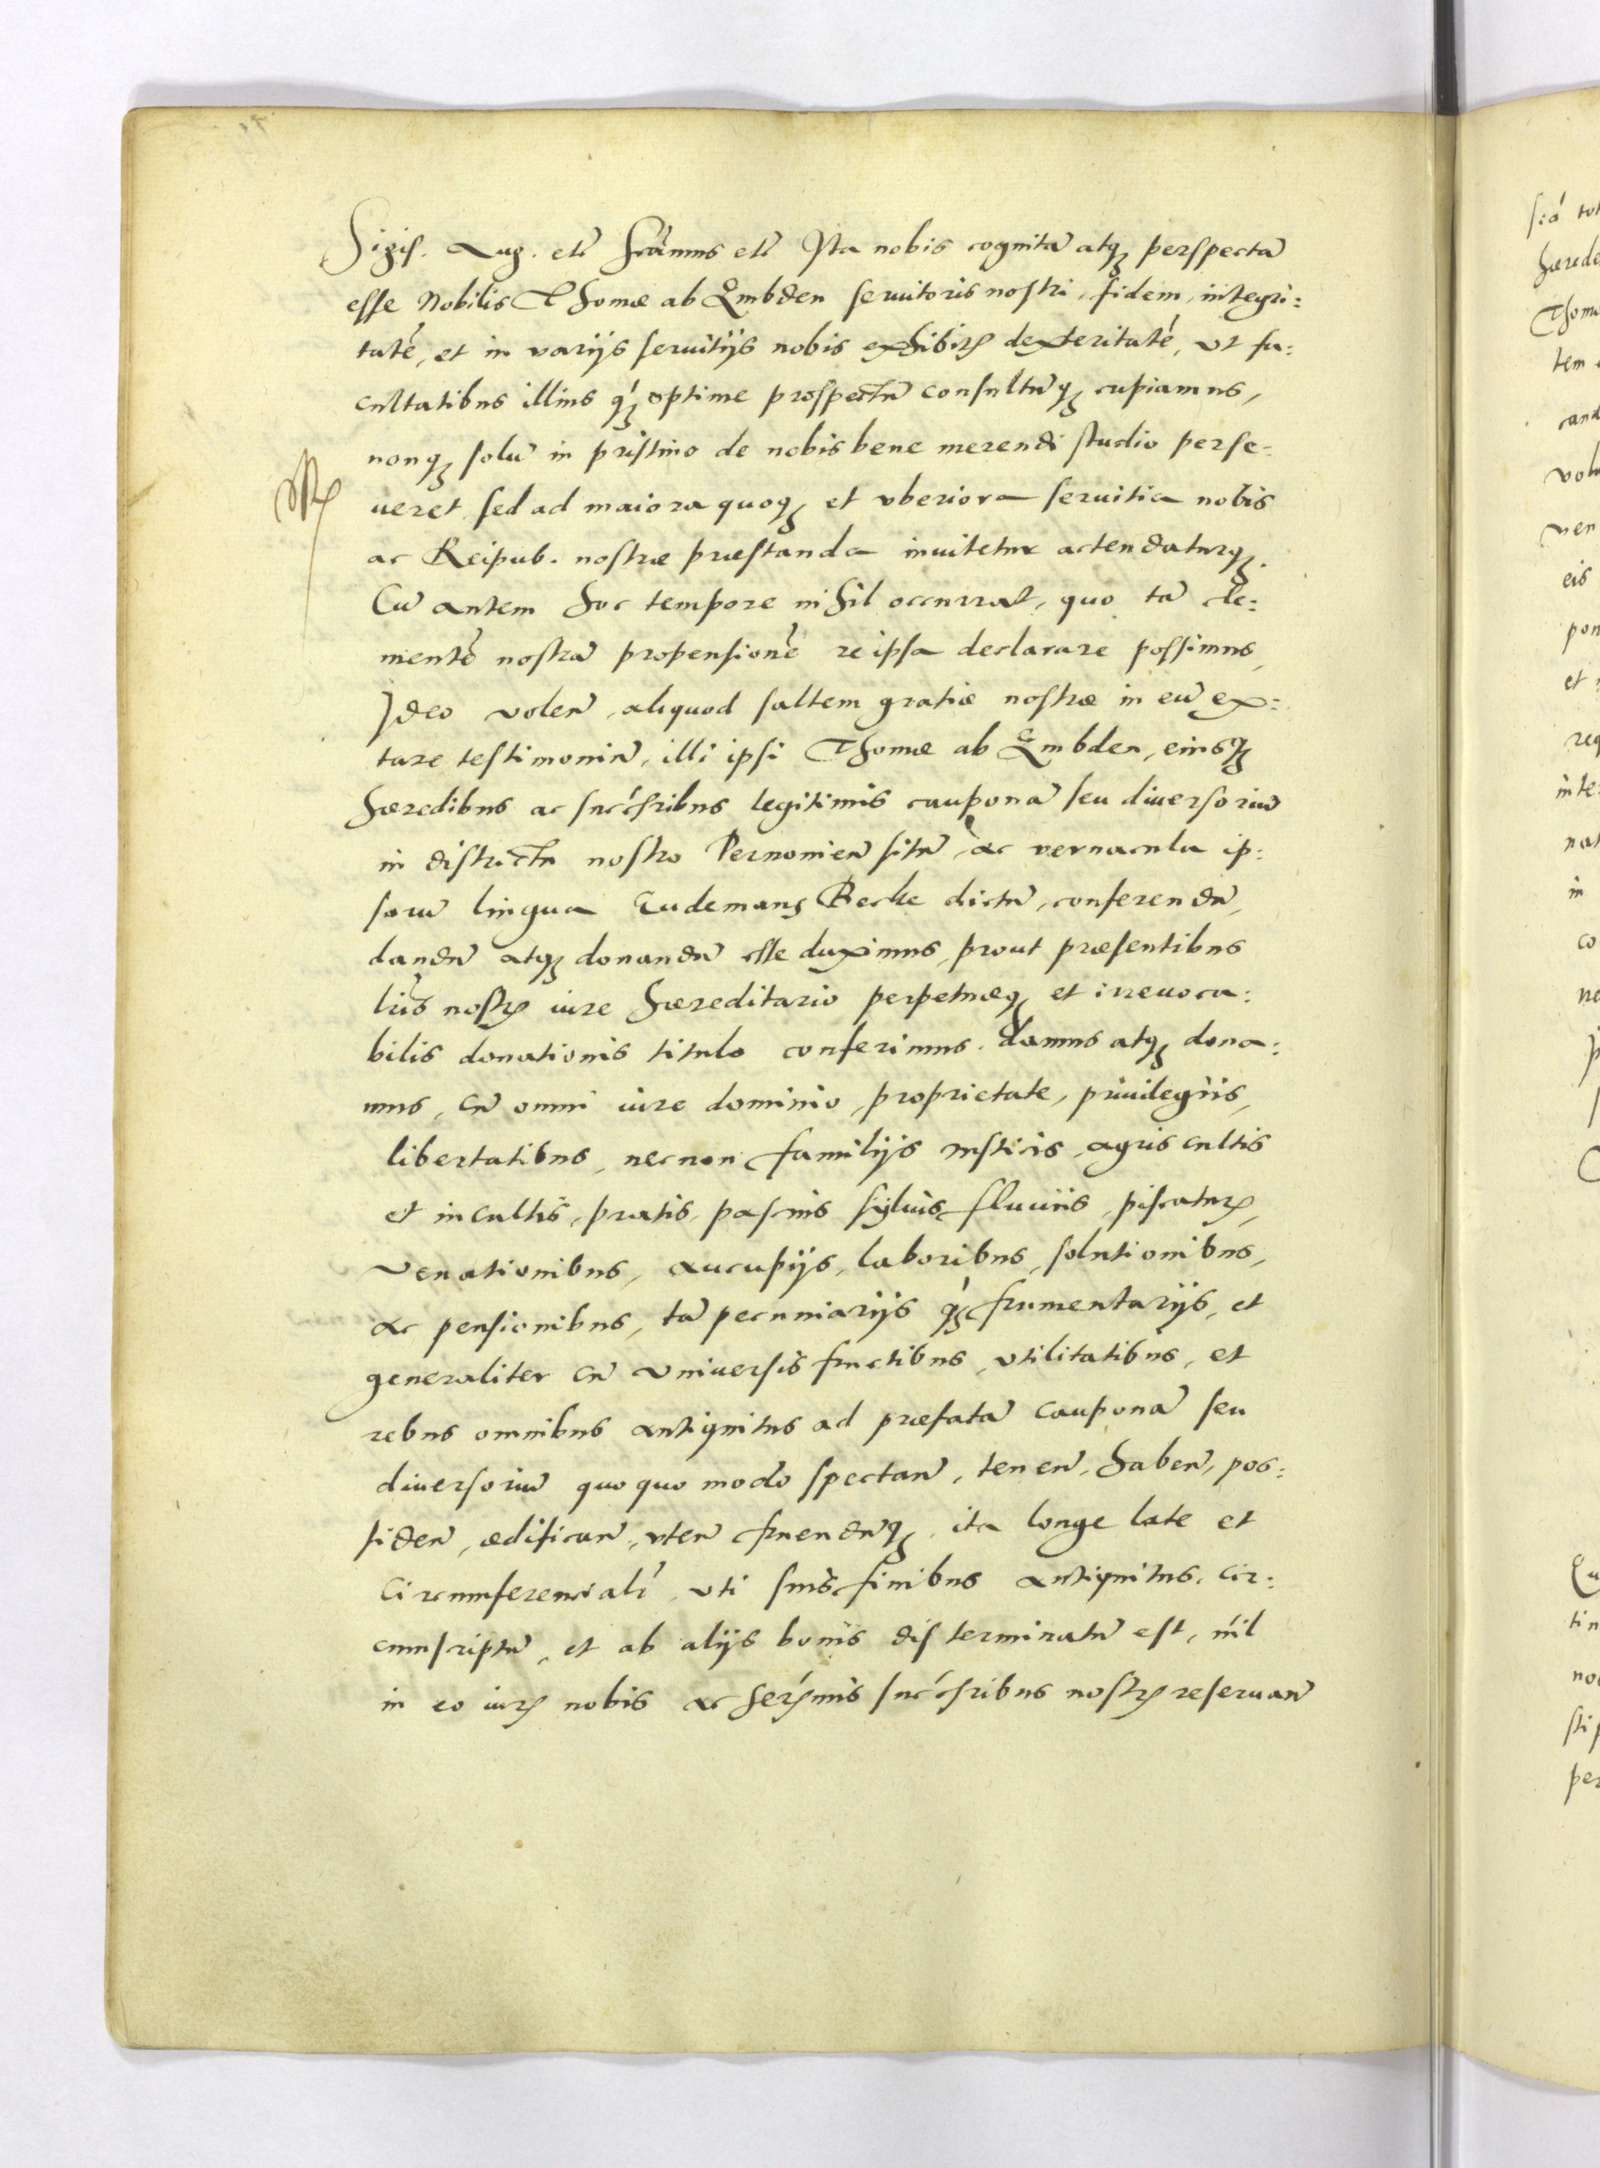 Sigis. Aug. etc̃ Scãmus etc̃ Ita nobis cognitã atq perspectã
esse Nobilis Thomæ ab Embden seruitoris nostri, fidem, integri:
tatẽ, et in varijs seruitijs nobis exhibitꝭ dexteritatẽ, vt fa:
cultatibus illius qꝫ̃ optime prospectũ consultũqꝫ cupiamus,
nonqꝫ solũ in pristino de nobis bene merendi studio perse-
ueret sed ad maiora quoqꝫ et vberiora seruitia nobis
ac Reipub. nostræ præstanda inuitetur actendaturqꝫ.
Cũ autem hoc tempore nihil occurrat, quo tã cle:
mentẽ nostrã propensionẽ re ipsa declarare possimus,
Ideo volen̄, aliquod saltem gratiæ nostræ in eũ ex:
tare testimoniũ, illi ipsi Thomæ ab Embden, eiusqꝫ
hæredibus ac succ̃sribus legitimis cauponã seu diuersoriũ
in districtu nostro Pernouien̄ sitũ, ac vernacula ip:
sorũ lingua Tudemans Becke dictũ, conferendũ,
dandũ atqꝫ donandũ esse duximus, prout præsentibus
lrĩs nostrꝭ iure hæreditario perpetuæqꝫ et irreuoca:
bilis donationis titulo conferimus. damus atqꝫ dona:
mus, cũ omni iure dominio, proprietate, priuilegiis,
libertatibus, necnon familijs rusticis, agris cultis
et incultis, pratis, pascuis syluis, fluuiis, piscaturꝭ,
venationibus, aucupijs, laboribus, solutionibus,
ac pensionibus, tã pecuniarijs qꝫ̃ frumentarijs, et
generaliter cũ vniuersis fructibus, vtilitatibus, et
rebus omnibus antiquitus ad præfatã cauponã seu
diuersoriũ quo quo modo spectan̄, tenen̄, haben̄, pos:
siden̄, ædifican̄, vten̄ fruendũqꝫ. ita longe late et
circumferencialr̃, vti suis finibus antiquitus, cir:
cumscriptũ, et ab alijs bonis disterminatũ est, nĩl
in eo iurꝭ nobis ac Serꝭmis succ̃sribus nostrꝭ reseruan̄